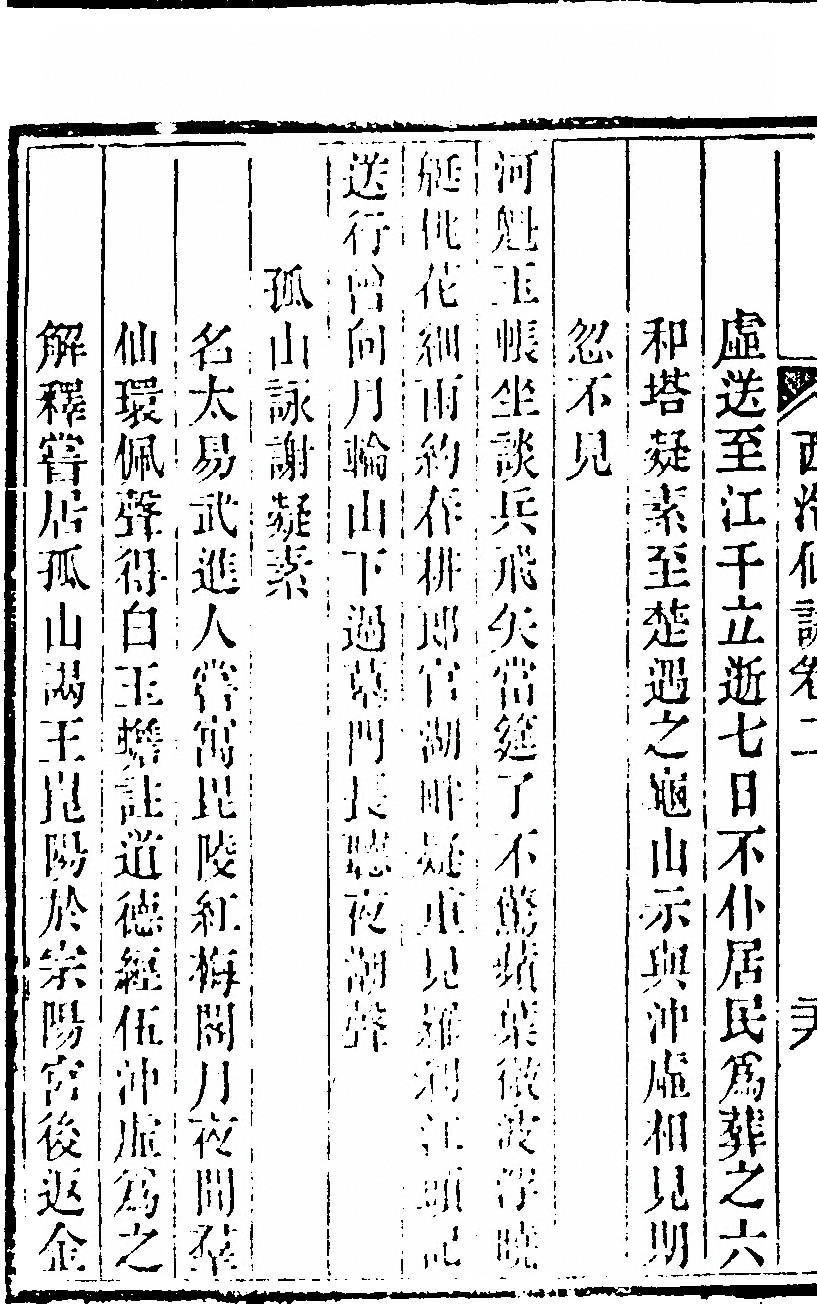 西泠仙詠卷二 二六
虛送至江干立逝七日不仆居民爲葬之六
和塔凝素至楚遇之龜山示與沖虛相見期
忽不見
河魁玉帳坐談兵飛矢當筵了不驚蘋葉微波浮曉
艇桃花細雨約春耕郎官湖畔疑重見羅刹江頭記
送行曾向月輪山下過墓門長聽夜潮聲
孤山詠謝凝素
名太易武進人嘗寓毘陵紅梅閣月夜聞羣
仙環佩聲得白玉蟾註道德經伍沖虛爲之
解釋嘗居孤山謁王崑陽於宗陽宮後返金